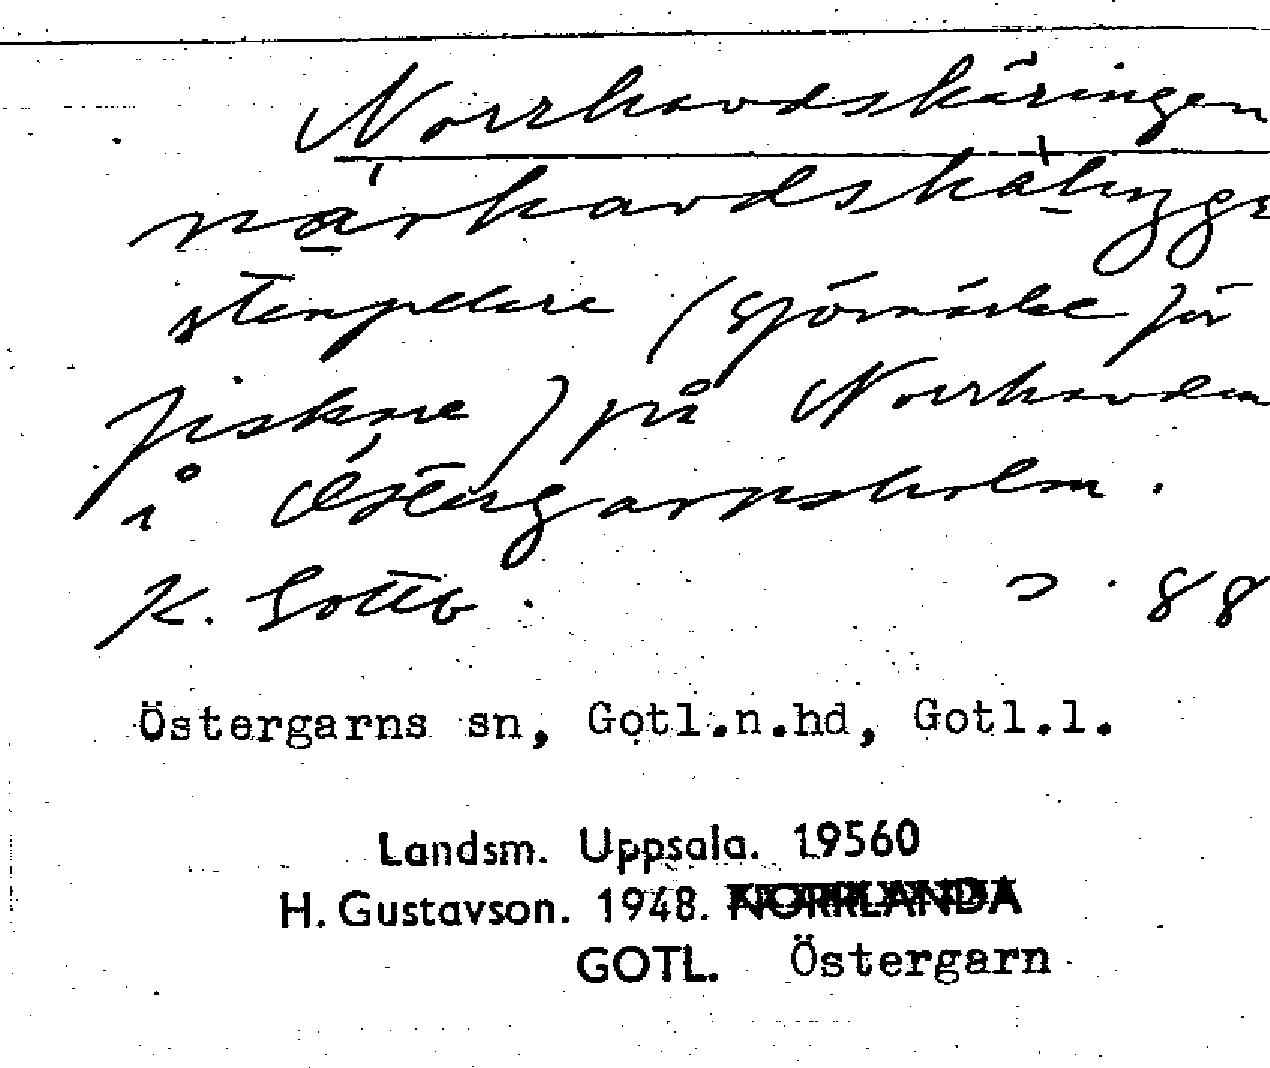 Norrhavdskäringen
stenpelare (sjömärke för
fiskare) på Norrhavden
i Östergarnsholm.
K. Gottb . 88
Östergarns sn, Gotl.n.hd, Gotl.l.
Landsm. Uppsala. 19560
H. Gustavson. 1948. NORRLANDA
GOTL. Östergarn